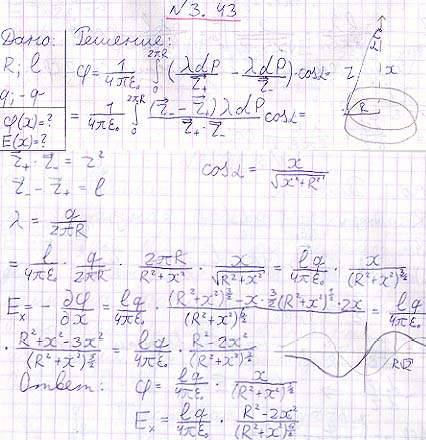 № 3. 43
Дано: Решение:
R; l
q; -q
φ(x)=?
E(x)=?
φ = 1/4πε₀ ∫₀^2πR (λdP/r₊ - λdP/r₋)·cosα =
= 1/4πε₀ ∫₀^2πR (r₋ - r₊)λdP/r₊·r₋ cosα =
r₊·r₋ = r²
r₋ - r₊ = l
cosα = x/√(x²+R²)
λ = q/2πR
= l/4πε₀ · q/2πR · 2πR/(R²+x²) · x/√(R²+x²) = lq/4πε₀ · x/(R²+x²)^3/2
Eₓ = - ∂φ/∂x = lq/4πε₀ · ((R²+x²)^3/2 - x·3/2(R²+x²)^½·2x)/(R²+x²)^6/2 = lq/4πε₀
· (R²+x²-3x²)/(R²+x²)^5/2 = lq/4πε₀ · (R²-2x²)/(R²+x²)^5/2
Ответ: φ = lq/4πε₀ · x/(R²+x²)^3/2
Eₓ = lq/4πε₀ · (R²-2x²)/(R²+x²)^5/2
x
R
R√2